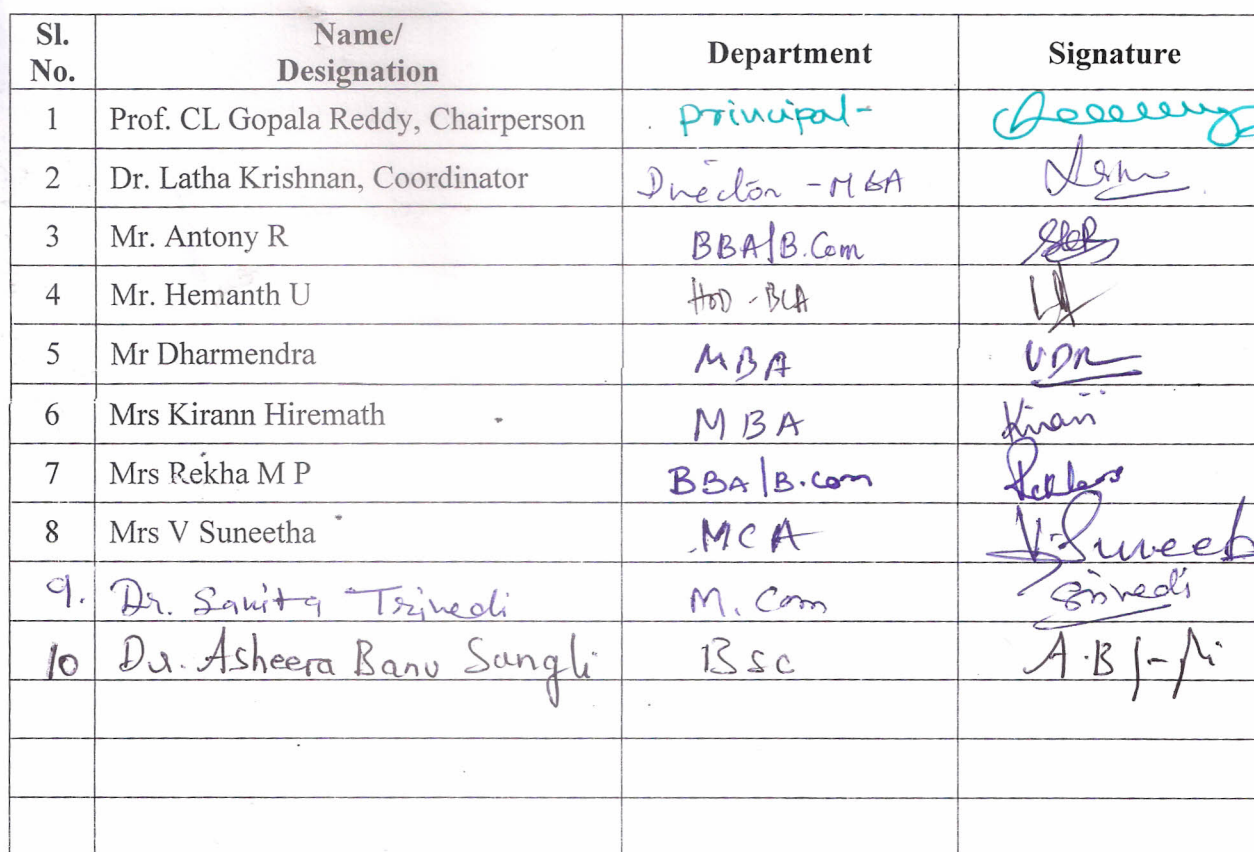 Sl. No. Name/ Designation Department Signature
1 Prof. CL Gopala Reddy, Chairperson Principal-
2 Dr. Latha Krishnan, Coordinator Director - MBA
3 Mr. Antony R BBA/B.Com
4 Mr. Hemanth U HOD - BCA
5 Mr Dharmendra MBA VDR
6 Mrs Kirann Hiremath MBA Kiran
7 Mrs Rekha M P BBA/B.com
8 Mrs V Suneetha MCA V.Suneet
9. Dr. Sanita Trivedi M. Com Trivedi
10 Dr. Asheera Banu Sangli BSc A.B